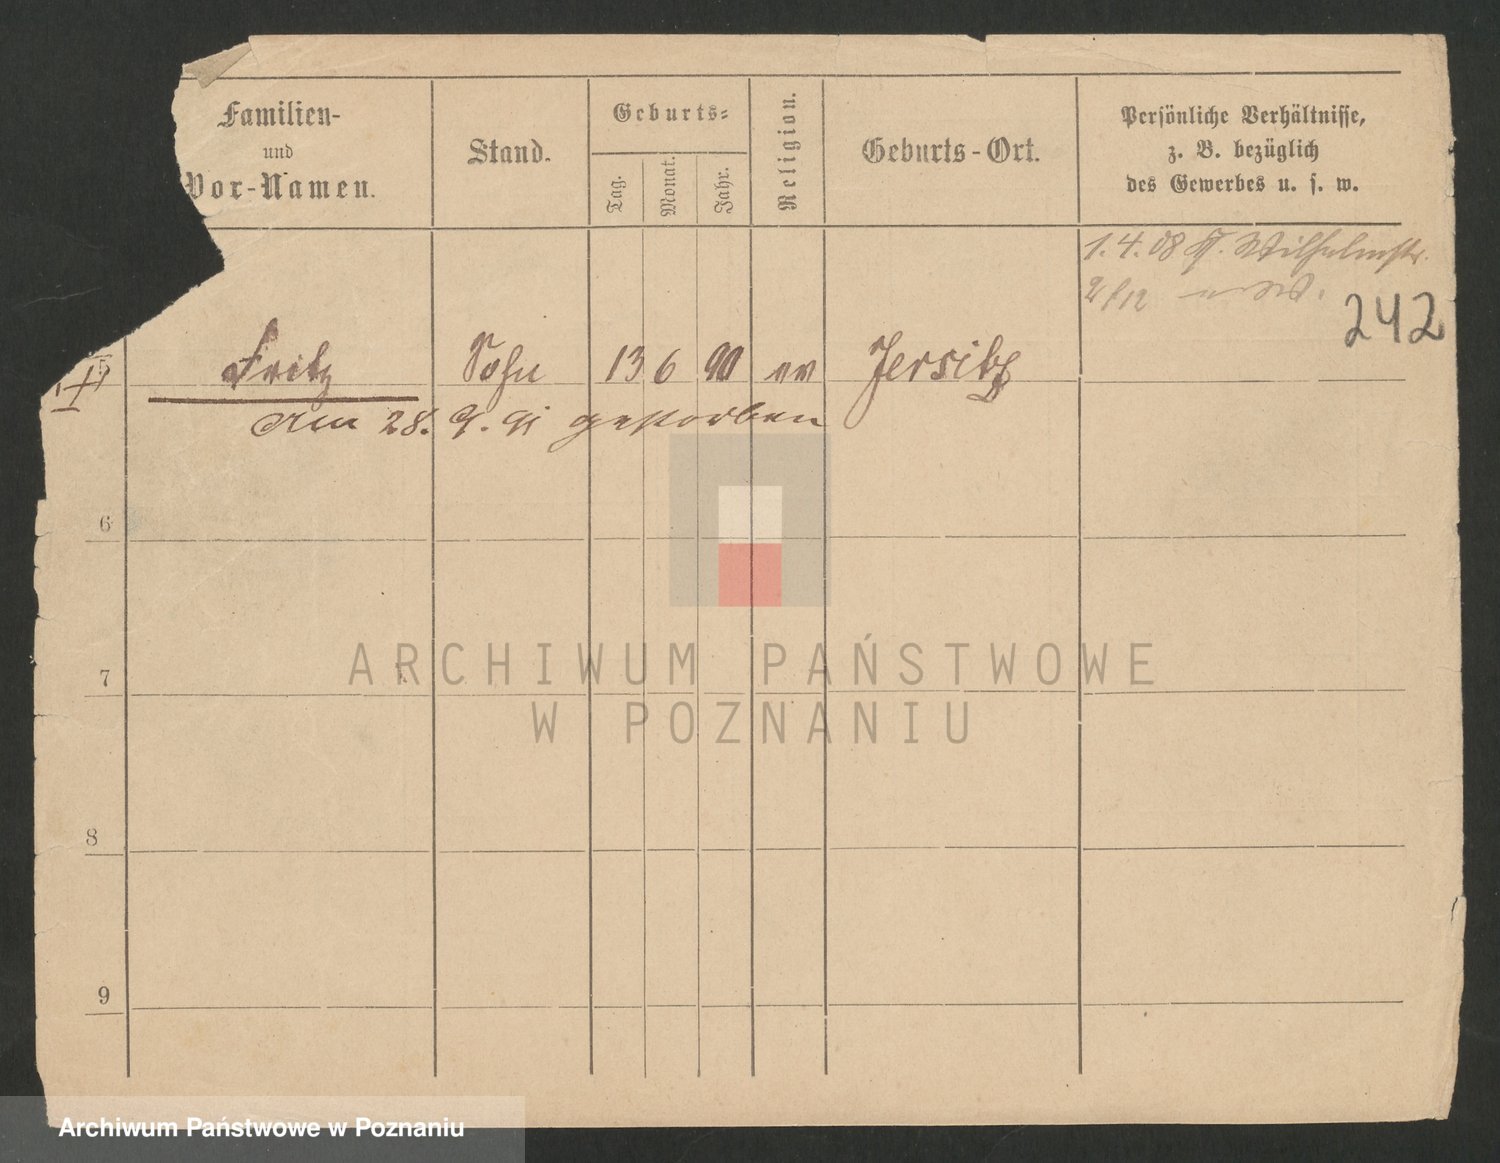 Familien-
und
Vor-Namen.
Stand.
Geburts-
Tag.
Monat.
Jahr.
Religion.
Geburts-Ort.
Persönliche Verhältnisse,
z. B. bezüglich
des Gewerbes u. s. w.
1. 4. 08 Wilhelmstr.
2/12
242
5 Fritz Sohn 13 6 90 ev Jersitz
Am 28. 9. 91 gestorben
6
7
8
9
ARCHIWUM PAŃSTWOWE
W POZNANIU
Archiwum Państwowe w Poznaniu